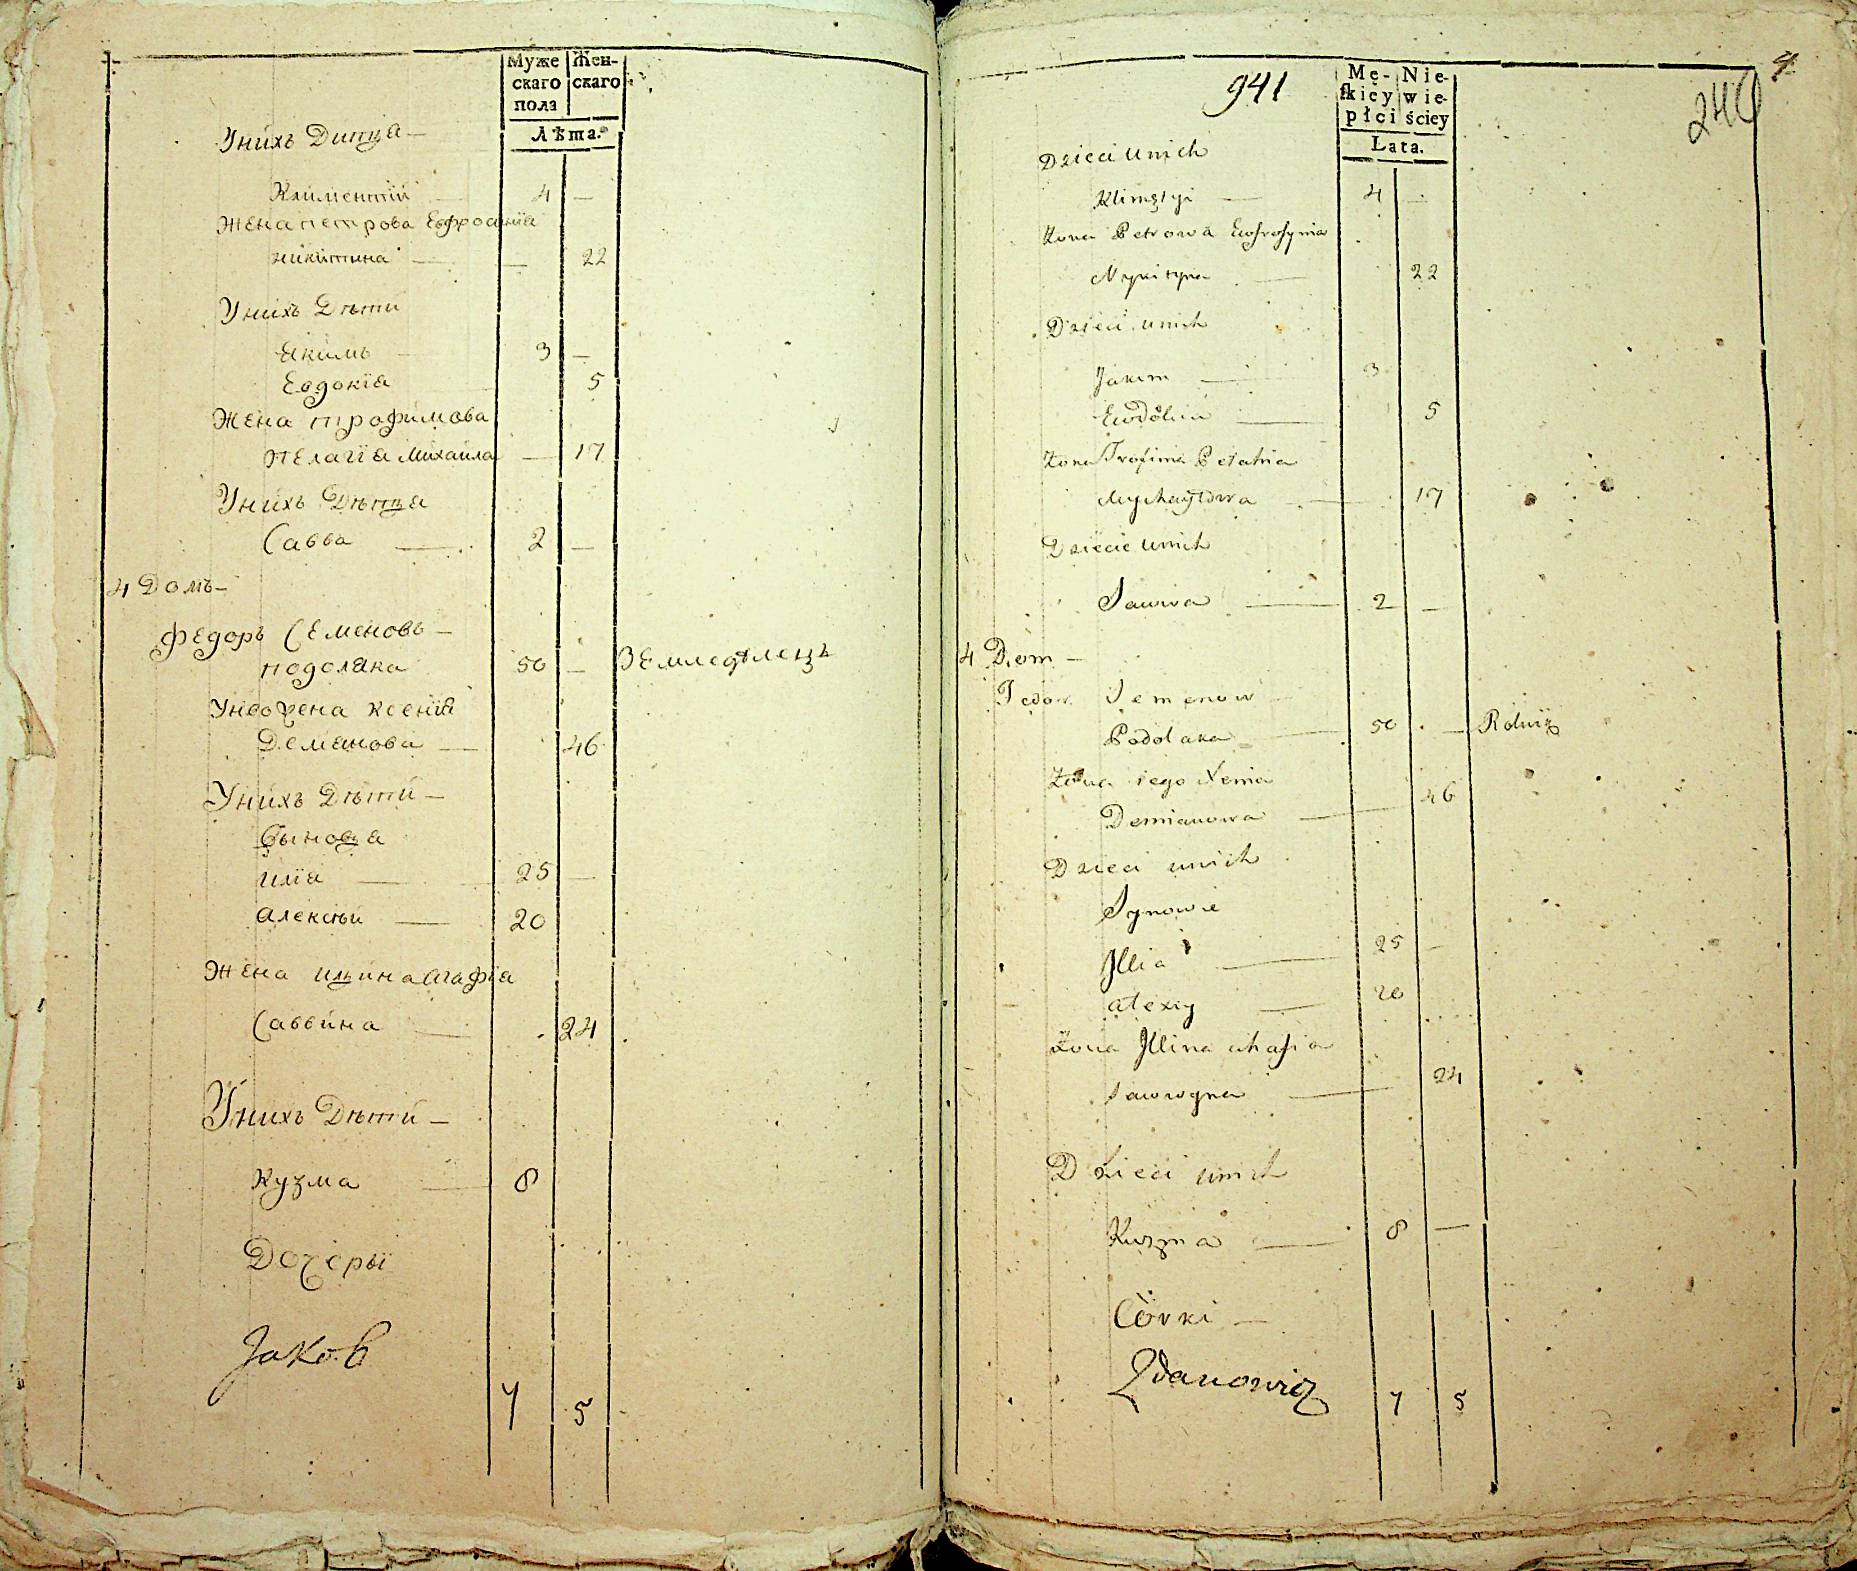 Муже Жен-
скаго скаго
пола
Лѣта.
Унихъ Дитца —
Климентїй — 4 —
Жена петрова Евфросинїа
никитина — — 22
Унихъ Дѣти
Якимъ — 3 —
Евдокїа 5
Жена трофимова
пелагїа Михаила — 17
Унихъ Дѣтца
Савва — 2 —
4 Домъ —
Федоръ Семеновъ —
подоляка 50 — Землѣдѣлецъ
Унеоżена Ксенїя
Демянова — 46
Унихъ Дѣти —
Сыновя
илїа — 25 —
алексѣй — 20
Жена ильина агафїа
Саввина — 24
Унихъ Дѣти —
Кузма — 8
Дочеры
Jakob
7 5
941
240
Mę- Nie-
ſkiey wie-
płci ściey
Lata.
Dzieci unich
Klimętyi — 4 —
Żona Petrowa Ewfrosynia
Nykityna — 22
Dzieci unich
Jakim — 3
Ewdokia — 5
Żona Trofima Pelahia
Mychayłowa — 17
Dziecie unich
Sawwa — 2 —
4 Dom —
Fedor Semenow
Podolaka — 50 — Rolnik
Żona iego Xenia
Demianowa — 46
Dzieci unich
Synowie
Illia — 25 —
alexiy — 20
Żona Illina ahafia
Sawwyna — 24
Dzieci unich
Kuzma — 8 —
Córki —
Zdanowicz
7 5